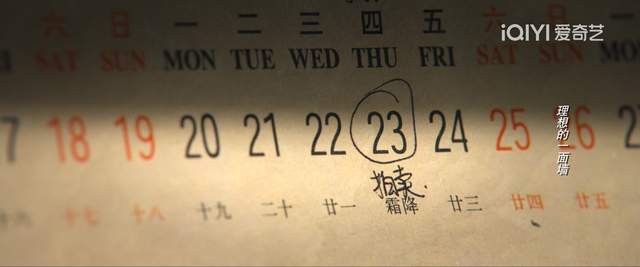 iQIYI 爱奇艺
六 日 一 二 三 四 五 六 日 一
SAT SUN MON TUE WED THU FRI SAT SUN MON
18 19 20 21 22 23 24 25 26
拍卖
十六 十七 十八 十九 二十 廿一 霜降 廿三 廿四 廿五
理想的一面墙